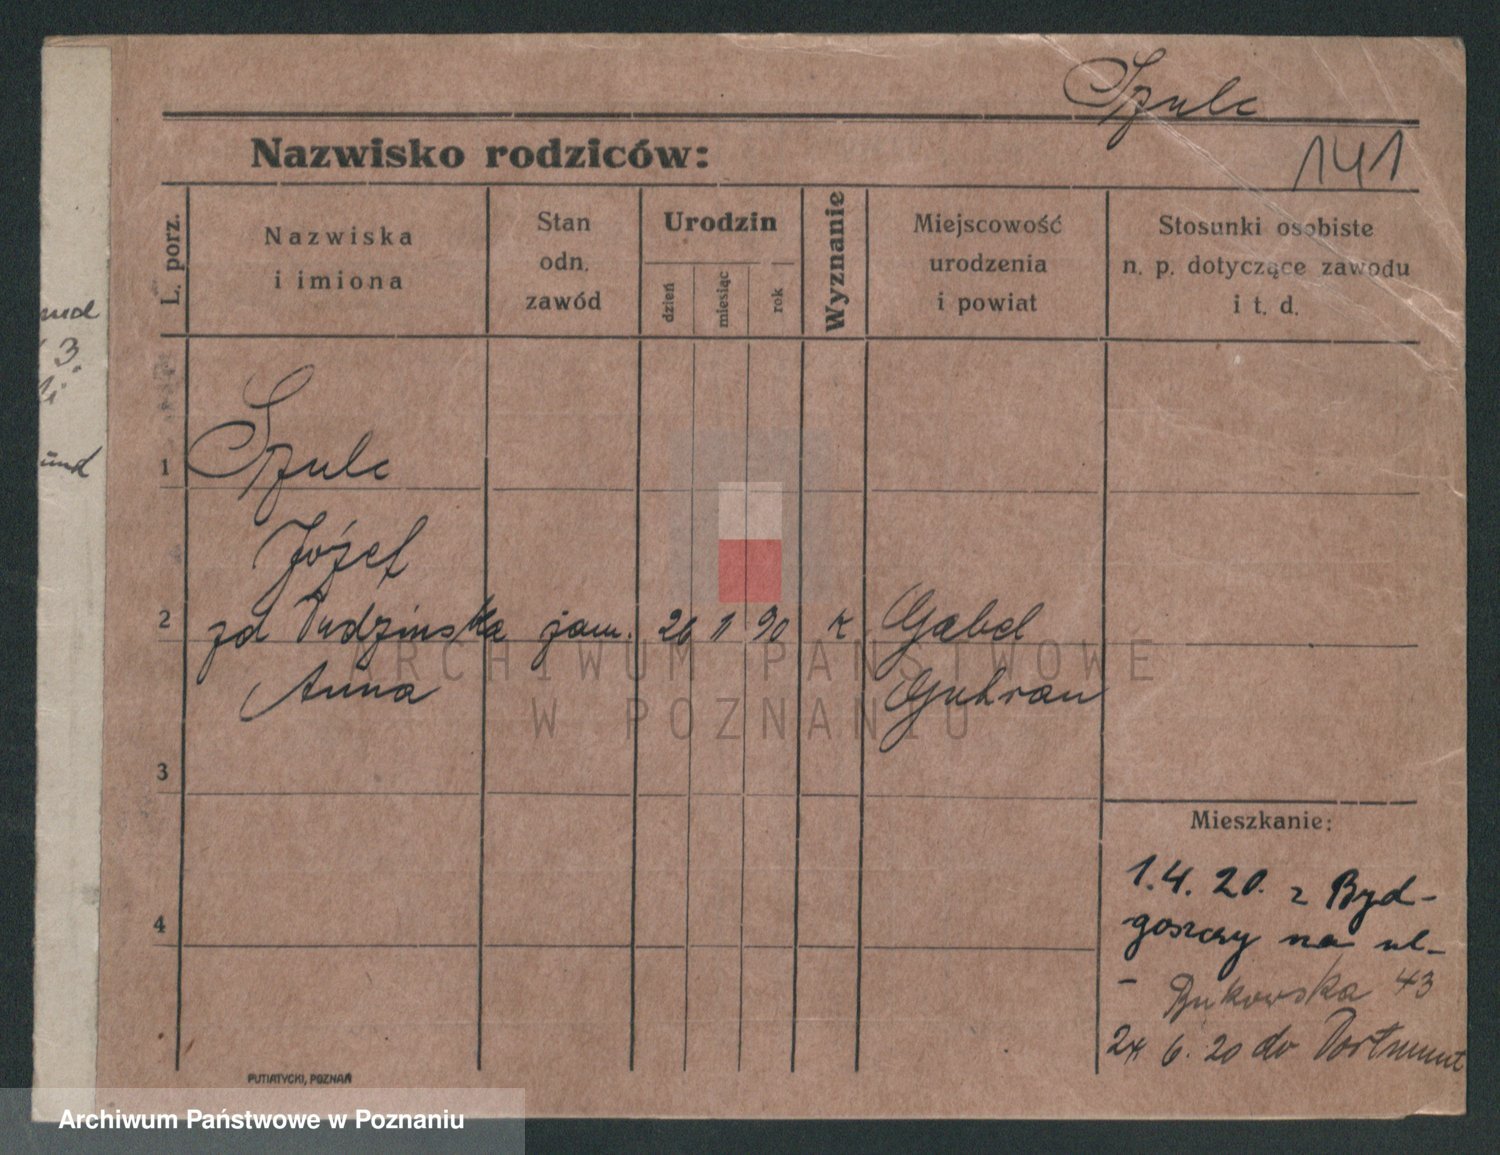 Szulc
Nazwisko rodziców:
141
L. porz.
Nazwiska
i imiona
Stan
odn.
zawód
Urodzin
dzień
miesiąc
rok
Wyznanie
Miejscowość
urodzenia
i powiat
Stosunki osobiste
n. p. dotyczące zawodu
i t. d.
3.
1
Szulc
Józef
2
zd Dudzinska zam. 26 1 90 K Gabel
Anna Guhrau
3
4
Mieszkanie:
1.4.20. z Byd-
goszczy na ul-
- Bukowska 43
24 6. 20 do Dortmunt
PUTIATYCKI, POZNAŃ
ARCHIWUM PAŃSTWOWE
W POZNANIU
Archiwum Państwowe w Poznaniu